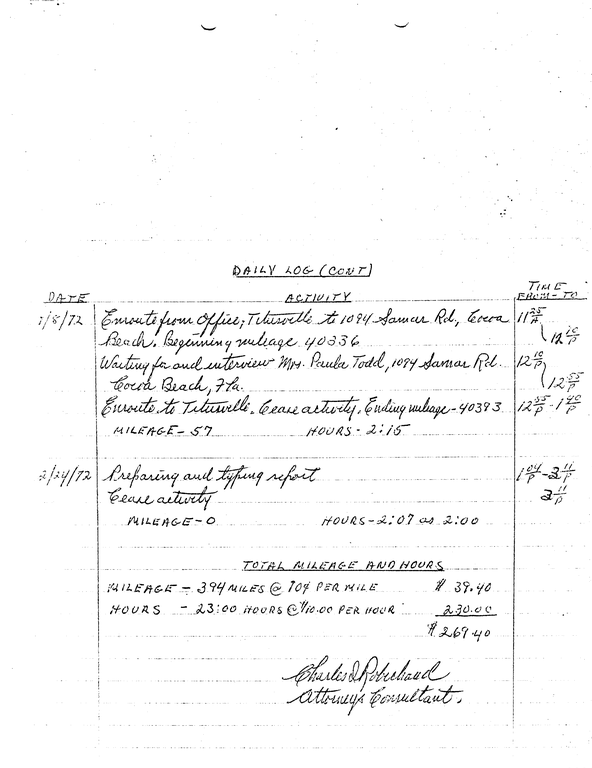 DAILY LOG (CONT)
DATE ACTIVITY TIME FROM - TO
1/8/72 Enroute from Office, Titusville to 1094 Samar Rd, Cocoa 11 25/A
Beach. Beginning mileage 40336 12 10/P
Waiting for and interview Mrs. Paula Todd, 1094 Samar Rd. 12 10/P
Cocoa Beach, Fla. 12 55/P
Enroute to Titusville. Cease activity. Ending mileage - 40393 12 55/P - 1 40/P
MILEAGE - 57 HOURS - 2:15
2/24/72 Preparing and typing report 1 04/P - 3 11/P
Cease activity 3 11/P
MILEAGE - 0 HOURS - 2:07 as 2:00
TOTAL MILEAGE AND HOURS
MILEAGE - 394 MILES @ 10¢ PER MILE $ 39.40
HOURS - 23:00 HOURS @ $10.00 PER HOUR 230.00
$ 269.40
Charles Robichaud
Attorneys Consultant.